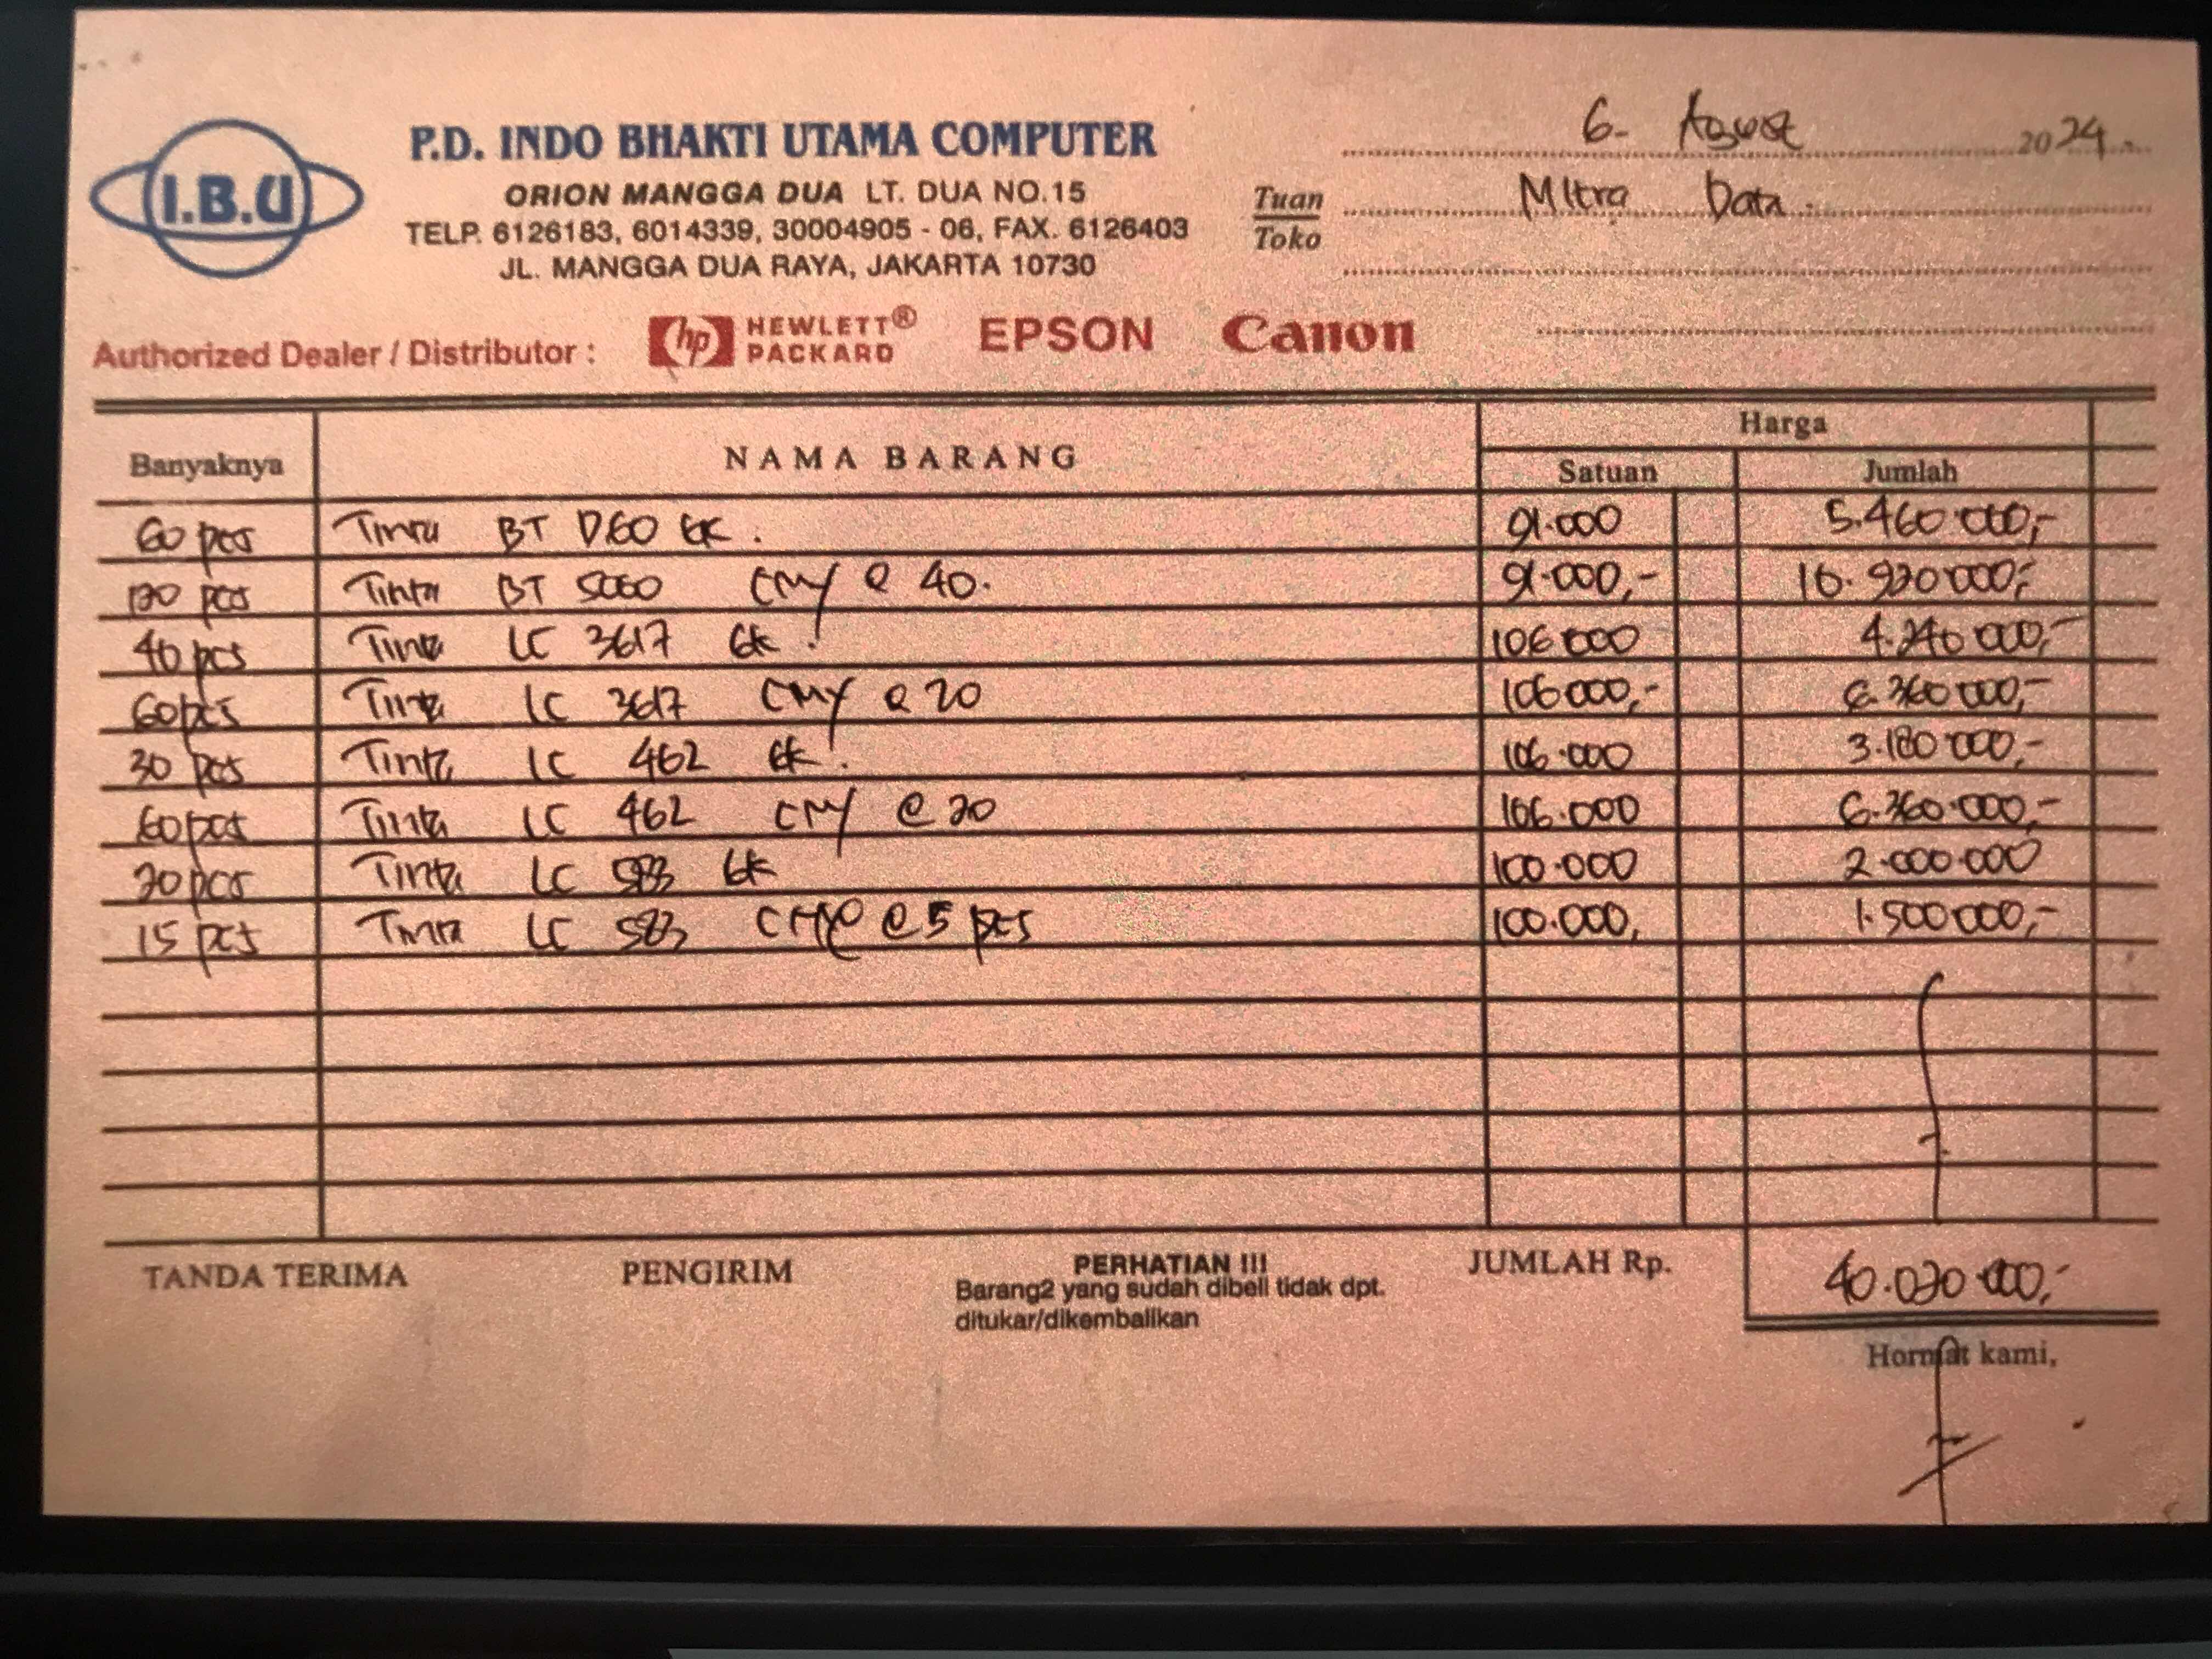 I.B.U
P.D. INDO BHAKTI UTAMA COMPUTER
ORION MANGGA DUA LT. DUA NO.15
TELP. 6126183, 6014339, 30004905 - 06, FAX. 6126403
JL. MANGGA DUA RAYA, JAKARTA 10730
6- Agust 2024.
Tuan
Toko
Mitra Data.
Authorized Dealer / Distributor : hp HEWLETT® PACKARD EPSON Canon
Banyaknya NAMA BARANG Harga
Satuan Jumlah
60 pcs Tinta BT D60 BK. 91.000 5.460.000,-
120 pcs Tinta BT 5060 CMY @ 40. 91.000,- 10.920.000,-
40 pcs Tinta LC 3617 BK. 106.000 4.240.000,-
60 pcs Tinta LC 3617 CMY @ 20 106.000,- 6.360.000,-
30 pcs Tinta LC 462 BK. 106.000 3.180.000,-
60 pcs Tinta LC 462 CMY @ 20 106.000 6.360.000,-
20 pcs Tinta LC 583 BK 100.000 2.000.000
15 pcs Tinta LC 583 @ 5 pcs 100.000, 1.500.000,-
TANDA TERIMA PENGIRIM PERHATIAN !!! JUMLAH Rp. 40.020.000,-
Barang2 yang sudah dibeli tidak dpt.
ditukar/dikembalikan
Hormat kami,